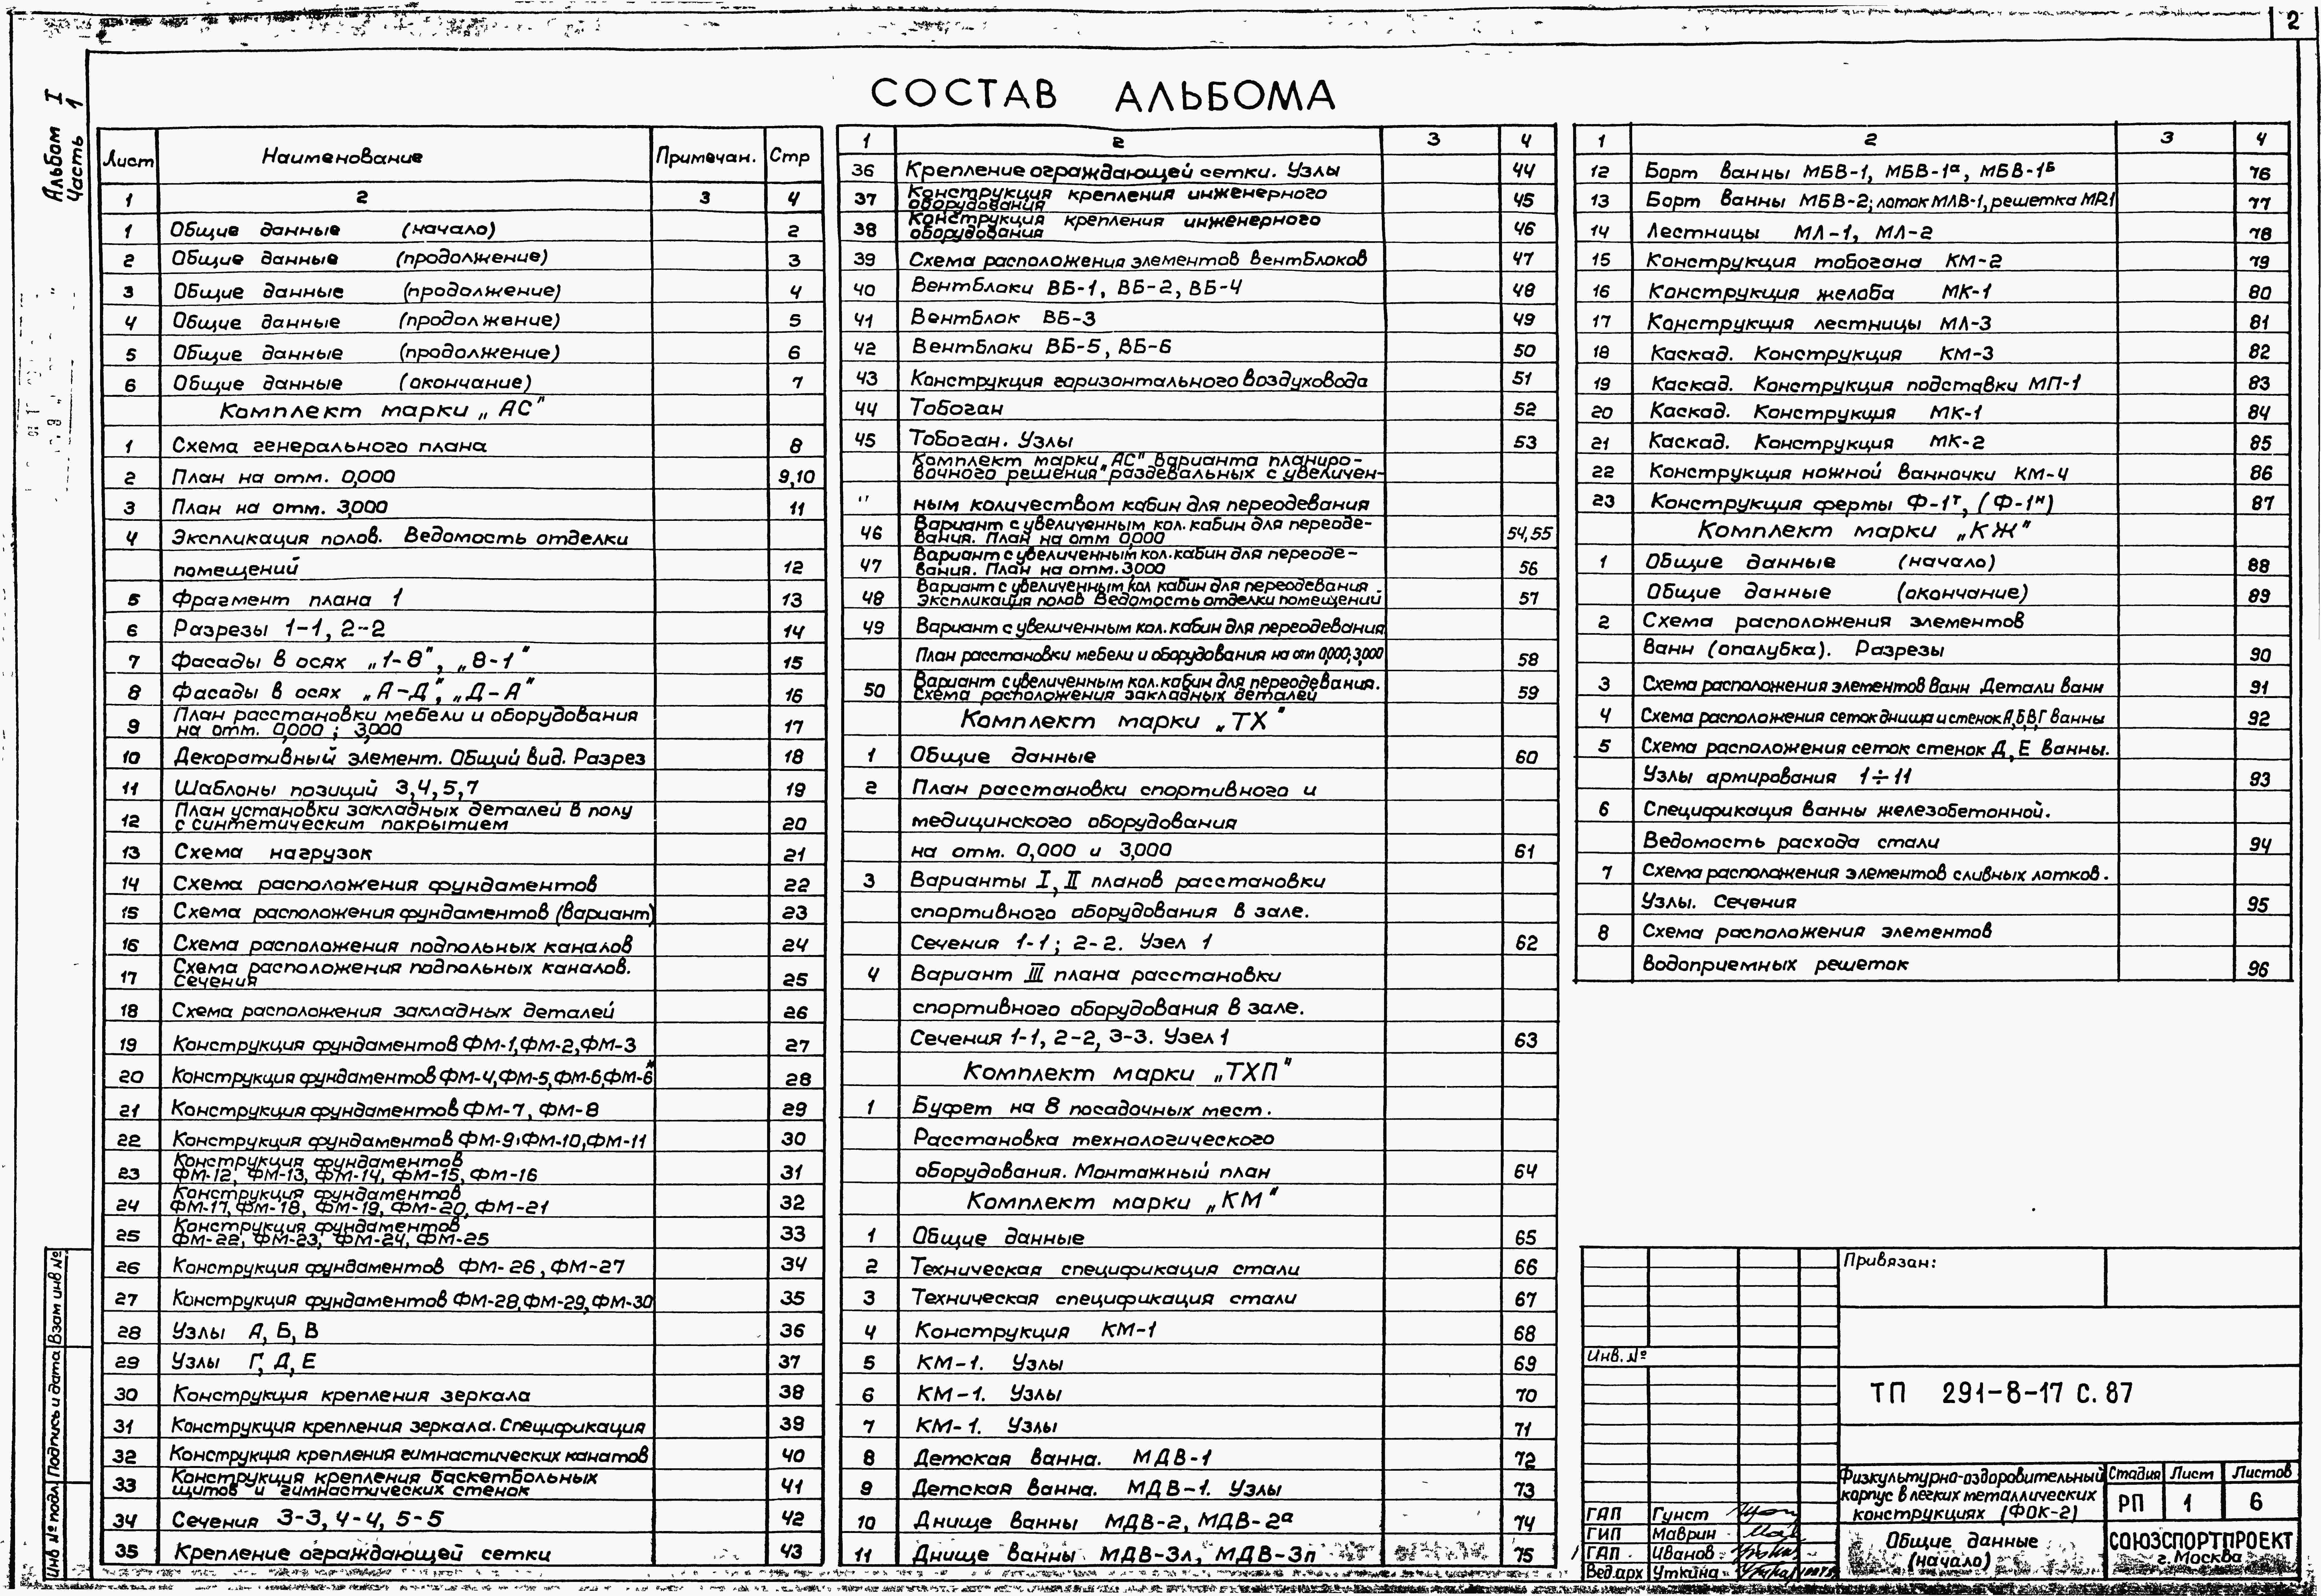 2
Альбом I
Часть 1
СОСТАВ АЛЬБОМА
Лист Наименование Примечан. Стр
1 2 3 4
1 Общие данные (начало) 2
2 Общие данные (продолжение) 3
3 Общие данные (продолжение) 4
4 Общие данные (продолжение) 5
5 Общие данные (продолжение) 6
6 Общие данные (окончание) 7
Комплект марки „АС"
1 Схема генерального плана 8
2 План на отм. 0,000 9,10
3 План на отм. 3,000 11
4 Экспликация полов. Ведомость отделки
помещений 12
5 Фрагмент плана 1 13
6 Разрезы 1-1, 2-2 14
7 Фасады в осях „1-8", „8-1" 15
8 Фасады в осях „А-Д", „Д-А" 16
9 План расстановки мебели и оборудования
на отм. 0,000; 3,000 17
10 Декоративный элемент. Общий вид. Разрез 18
11 Шаблоны позиций 3,4,5,7 19
12 План установки закладных деталей в полу
с синтетическим покрытием 20
13 Схема нагрузок 21
14 Схема расположения фундаментов 22
15 Схема расположения фундаментов (вариант) 23
16 Схема расположения подпольных каналов 24
17 Схема расположения подпольных каналов.
Сечения 25
18 Схема расположения закладных деталей 26
19 Конструкция фундаментов ФМ-1,ФМ-2,ФМ-3 27
20 Конструкция фундаментов ФМ-4,ФМ-5,ФМ-6,ФМ-6н 28
21 Конструкция фундаментов ФМ-7, ФМ-8 29
22 Конструкция фундаментов ФМ-9,ФМ-10,ФМ-11 30
23 Конструкция фундаментов
ФМ-12, ФМ-13, ФМ-14, ФМ-15, ФМ-16 31
24 Конструкция фундаментов
ФМ-17, ФМ-18, ФМ-19, ФМ-20, ФМ-21 32
25 Конструкция фундаментов
ФМ-22, ФМ-23, ФМ-24, ФМ-25 33
26 Конструкция фундаментов ФМ-26, ФМ-27 34
27 Конструкция фундаментов ФМ-28,ФМ-29,ФМ-30 35
28 Узлы А, Б, В 36
29 Узлы Г, Д, Е 37
30 Конструкция крепления зеркала 38
31 Конструкция крепления зеркала. Спецификация 39
32 Конструкция крепления гимнастических канатов 40
33 Конструкция крепления баскетбольных
щитов и гимнастических стенок 41
34 Сечения 3-3, 4-4, 5-5 42
35 Крепление ограждающей сетки 43
1 2 3 4
36 Крепление ограждающей сетки. Узлы 44
37 Конструкция крепления инженерного
оборудования 45
38 Конструкция крепления инженерного
оборудования 46
39 Схема расположения элементов вентблоков 47
40 Вентблоки ВБ-1, ВБ-2, ВБ-4 48
41 Вентблок ВБ-3 49
42 Вентблоки ВБ-5, ВБ-6 50
43 Конструкция горизонтального воздуховода 51
44 Тобоган 52
45 Тобоган. Узлы 53
Комплект марки „АС" варианта планиро-
вочного решения раздевальных с увеличен-
ным количеством кабин для переодевания
46 Вариант с увеличенным кол. кабин для переоде-
вания. План на отм 0,000 54,55
47 Вариант с увеличенным кол. кабин для переоде-
вания. План на отм. 3,000 56
48 Вариант с увеличенным кол кабин для переодевания.
Экспликация полов Ведомость отделки помещений 57
49 Вариант с увеличенным кол. кабин для переодевания
План расстановки мебели и оборудования на отм 0,000; 3,000 58
50 Вариант с увеличенным кол. кабин для переодевания.
Схема расположения закладных деталей 59
Комплект марки „ТХ"
1 Общие данные 60
2 План расстановки спортивного и
медицинского оборудования
на отм. 0,000 и 3,000 61
3 Варианты I, II планов расстановки
спортивного оборудования в зале.
Сечения 1-1; 2-2. Узел 1 62
4 Вариант III плана расстановки
спортивного оборудования в зале.
Сечения 1-1, 2-2, 3-3. Узел 1 63
Комплект марки „ТХП"
1 Буфет на 8 посадочных мест.
Расстановка технологического
оборудования. Монтажный план 64
Комплект марки „КМ"
1 Общие данные 65
2 Техническая спецификация стали 66
3 Техническая спецификация стали 67
4 Конструкция КМ-1 68
5 КМ-1. Узлы 69
6 КМ-1. Узлы 70
7 КМ-1. Узлы 71
8 Детская ванна. МДВ-1 72
9 Детская ванна. МДВ-1. Узлы 73
10 Днище ванны МДВ-2, МДВ-2а 74
11 Днище ванны МДВ-3л, МДВ-3п 75
1 2 3 4
12 Борт ванны МБВ-1, МБВ-1а, МБВ-1Б 76
13 Борт ванны МБВ-2; лоток МЛВ-1, решетка МР1 77
14 Лестницы МЛ-1, МЛ-2 78
15 Конструкция тобогана КМ-2 79
16 Конструкция желоба МК-1 80
17 Конструкция лестницы МЛ-3 81
18 Каскад. Конструкция КМ-3 82
19 Каскад. Конструкция подставки МП-1 83
20 Каскад. Конструкция МК-1 84
21 Каскад. Конструкция МК-2 85
22 Конструкция ножной ванночки КМ-4 86
23 Конструкция фермы Ф-1т, (Ф-1н) 87
Комплект марки „КЖ"
1 Общие данные (начало) 88
Общие данные (окончание) 89
2 Схема расположения элементов
ванн (опалубка). Разрезы 90
3 Схема расположения элементов ванн Детали ванн 91
4 Схема расположения сеток днища и стенок А,Б,В,Г ванны 92
5 Схема расположения сеток стенок Д, Е ванны.
Узлы армирования 1÷11 93
6 Спецификация ванны железобетонной.
Ведомость расхода стали 94
7 Схема расположения элементов сливных лотков.
Узлы. Сечения 95
8 Схема расположения элементов
водоприемных решеток 96
Привязан:
Инв. №
ТП 291-8-17 С. 87
Физкультурно-оздоровительный
корпус в легких металлических
конструкциях (ФОК-2)
Стадия Лист Листов
РП 1 6
ГАП Гунст
ГИП Маврин
ГАП Иванов
Вед.арх Уткина
Общие данные
(начало)
СОЮЗСПОРТПРОЕКТ
г. Москва
Инв № подл Подпись и дата Взам инв №